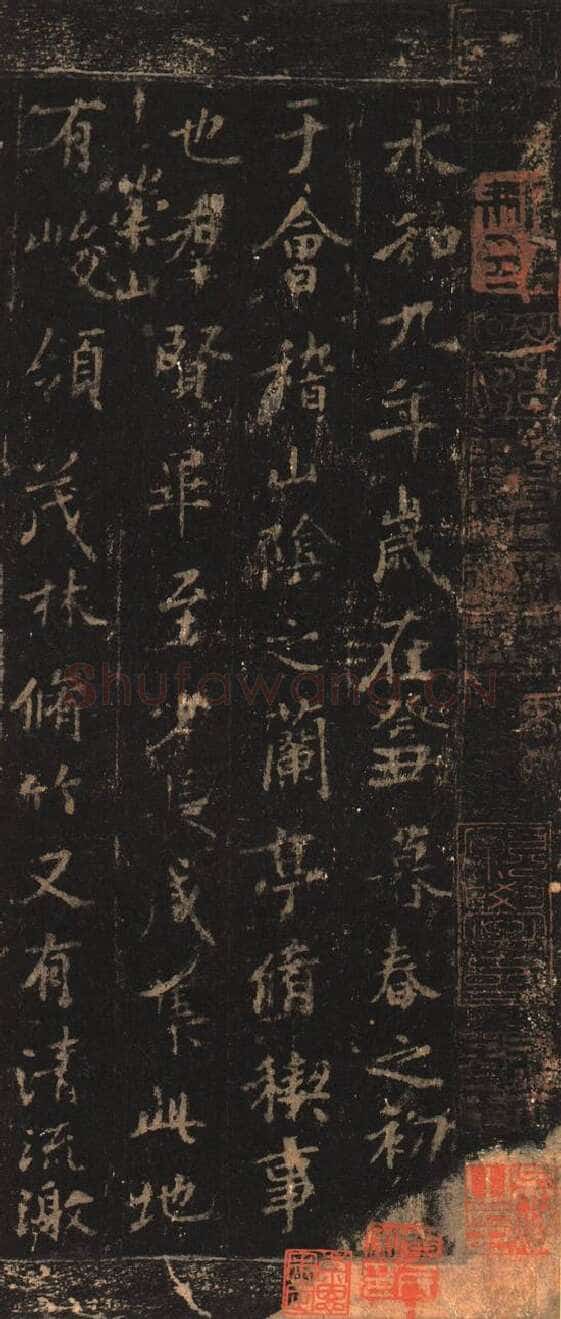 永和九年歲在癸丑暮春之初
于會稽山陰之蘭亭脩稧事
也羣賢畢至少長咸集此地
有崇山峻領茂林脩竹又有清流激
Shufawang.CN